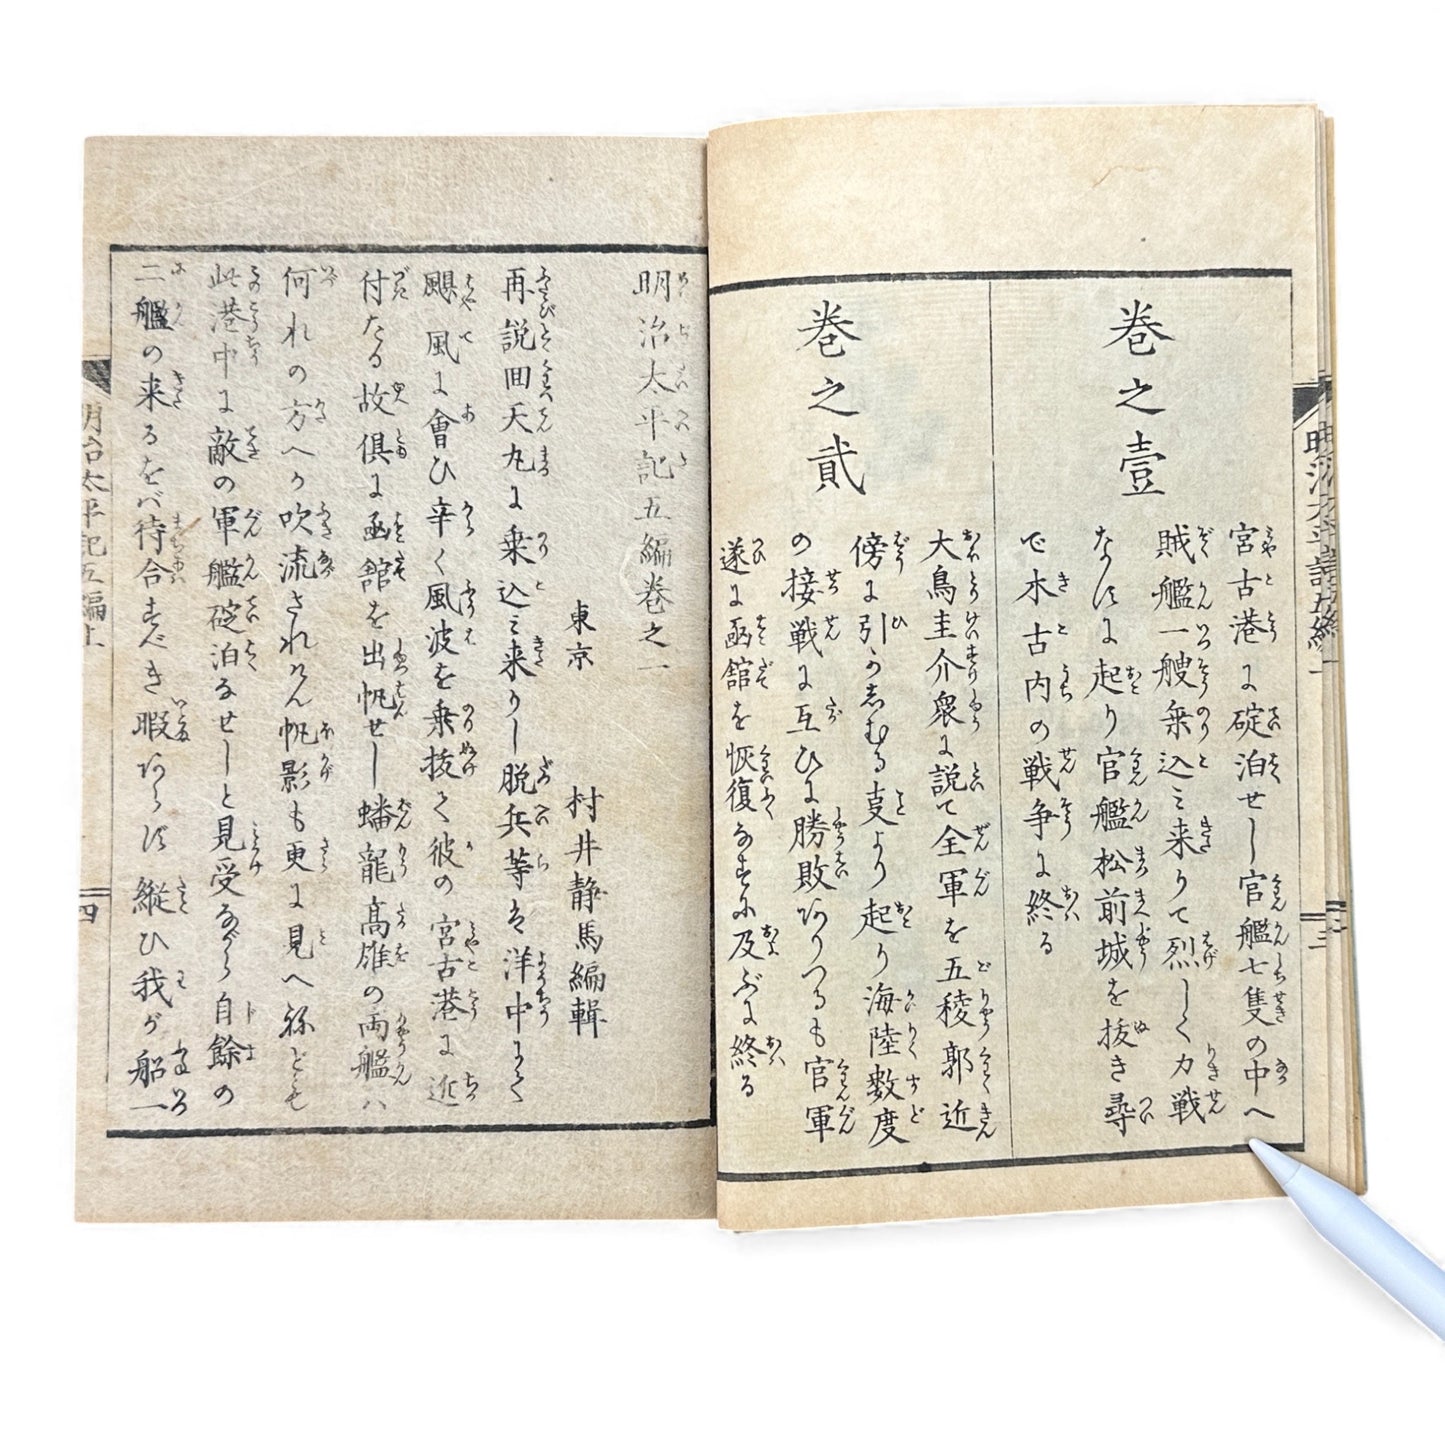 巻之壹
宮古港に碇泊せし官艦七隻の中へ
賊艦一艘乗込ミ来りて烈しく力戦
なすに起り官艦松前城を抜き尋
で木古内の戦争に終る
巻之貳
大鳥圭介衆に説て全軍を五稜郭近
傍に引かしむる支より起り海陸数度
の接戦に互ひに勝敗ありつるも官軍
遂に凾館を恢復なすに及ぶに終る
明治太平記五編巻之一
東京 村井静馬編輯
再説回天丸に乗込ミ来りし脱兵等は洋中にて
颶風に會ひ辛く風波を乗抜て彼の宮古港に近
付たる故倶に凾館を出帆せし蟠龍高雄の両艦ハ
何れの方へか吹流されけん帆影も更に見へねども
此港中に敵の軍艦碇泊なせしと見受ながら自餘の
二艦の来るをバ待合すべき暇あらず縦ひ我が船一
明治太平記五編上
四